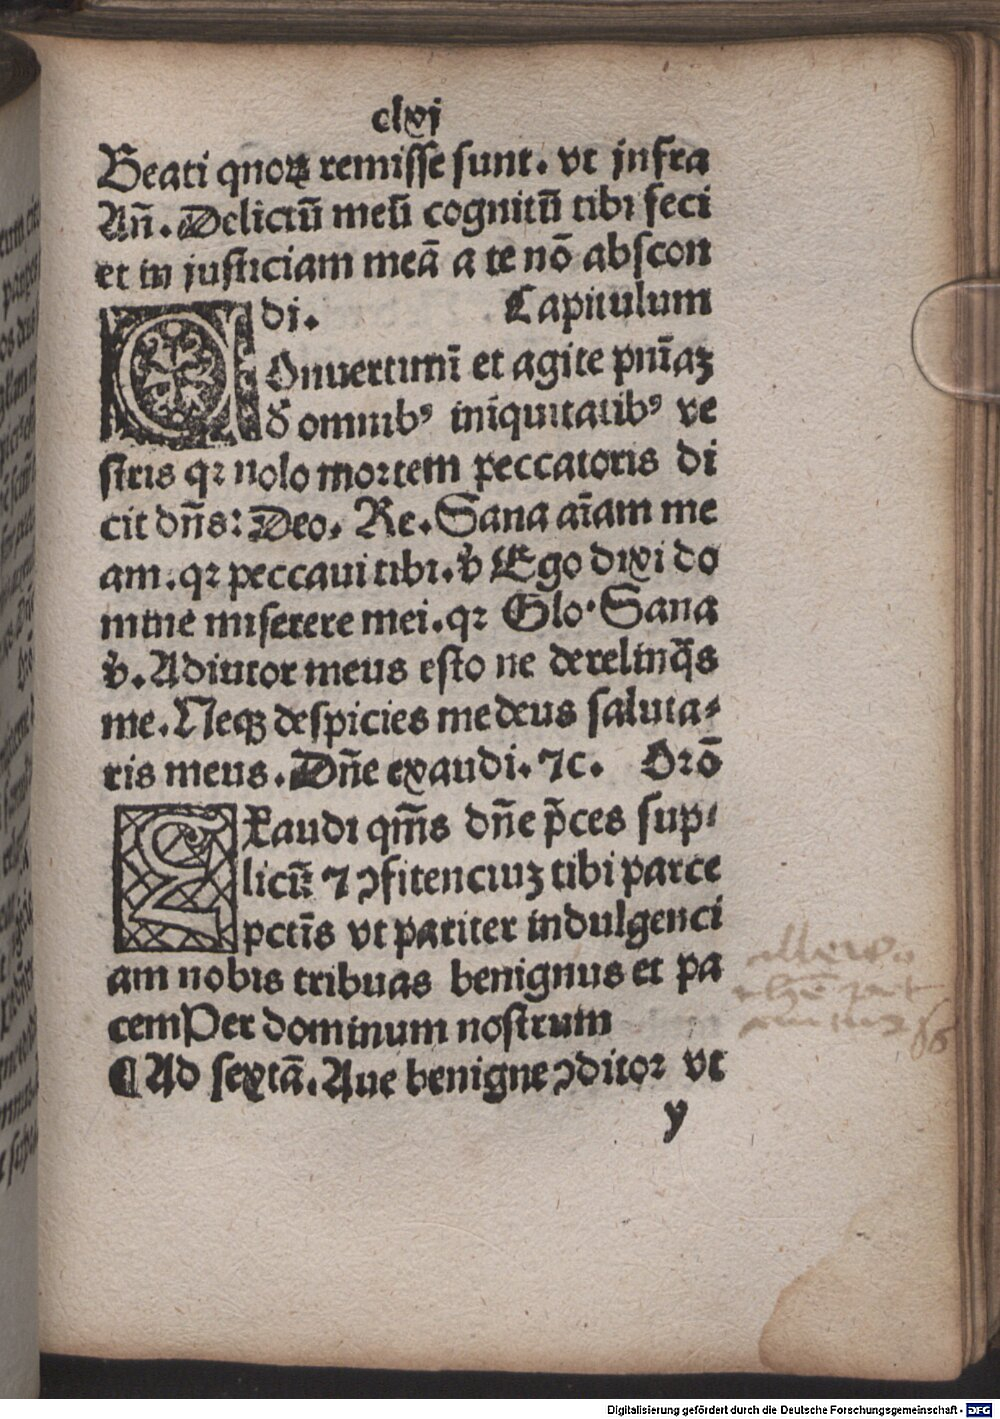 clxj
Beati quoꝝ remisse sunt. vt jnfra
Añ. Delictũ meũ cognitũ tibi feci
et in justiciam meã a te nõ abscon
di. Capitulum
COnuertimĩ et agite pnĩaꝫ
ð omnibꝰ iniquitatibꝰ ve
stris qꝛ nolo moꝛtem peccatoris di
cit dñs: Deo. Re. Sana aĩam me
am. qꝛ peccaui tibi. v̓ Ego dixi do
mine miserere mei. qꝛ Glo. Sana
v̓. Adiutor meus esto ne derelinq̃s
me. Neqꝫ despicies me deus saluta⸗
ris meus. Dñe exaudi. ⁊c. Oꝛõ
EXaudi qm̃s dñe p̃ces sup⸗
licũ ⁊ ꝯfitenciuꝫ tibi parce
pctĩs vt pariter indulgenci
am nobis tribuas benignus et pa
cem Per dominum nostrum
¶ Ad sextã. Aue benigne ꝯditoꝛ vt
y
Digitalisierung gefördert durch die Deutsche Forschungsgemeinschaft - DFG